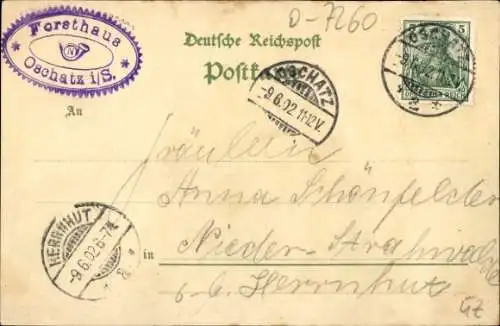 Forsthaus
N
Oschatz i/S.
D-7260
Deutsche Reichspost
5
OSCHATZ
-9.6.02.11-12V.
An
Fräulein
Anna Schönfelder
HERRNHUT
-9.6.02.6-7N.
* a *
in Nieder-Strahwalde
b. Herrnhut